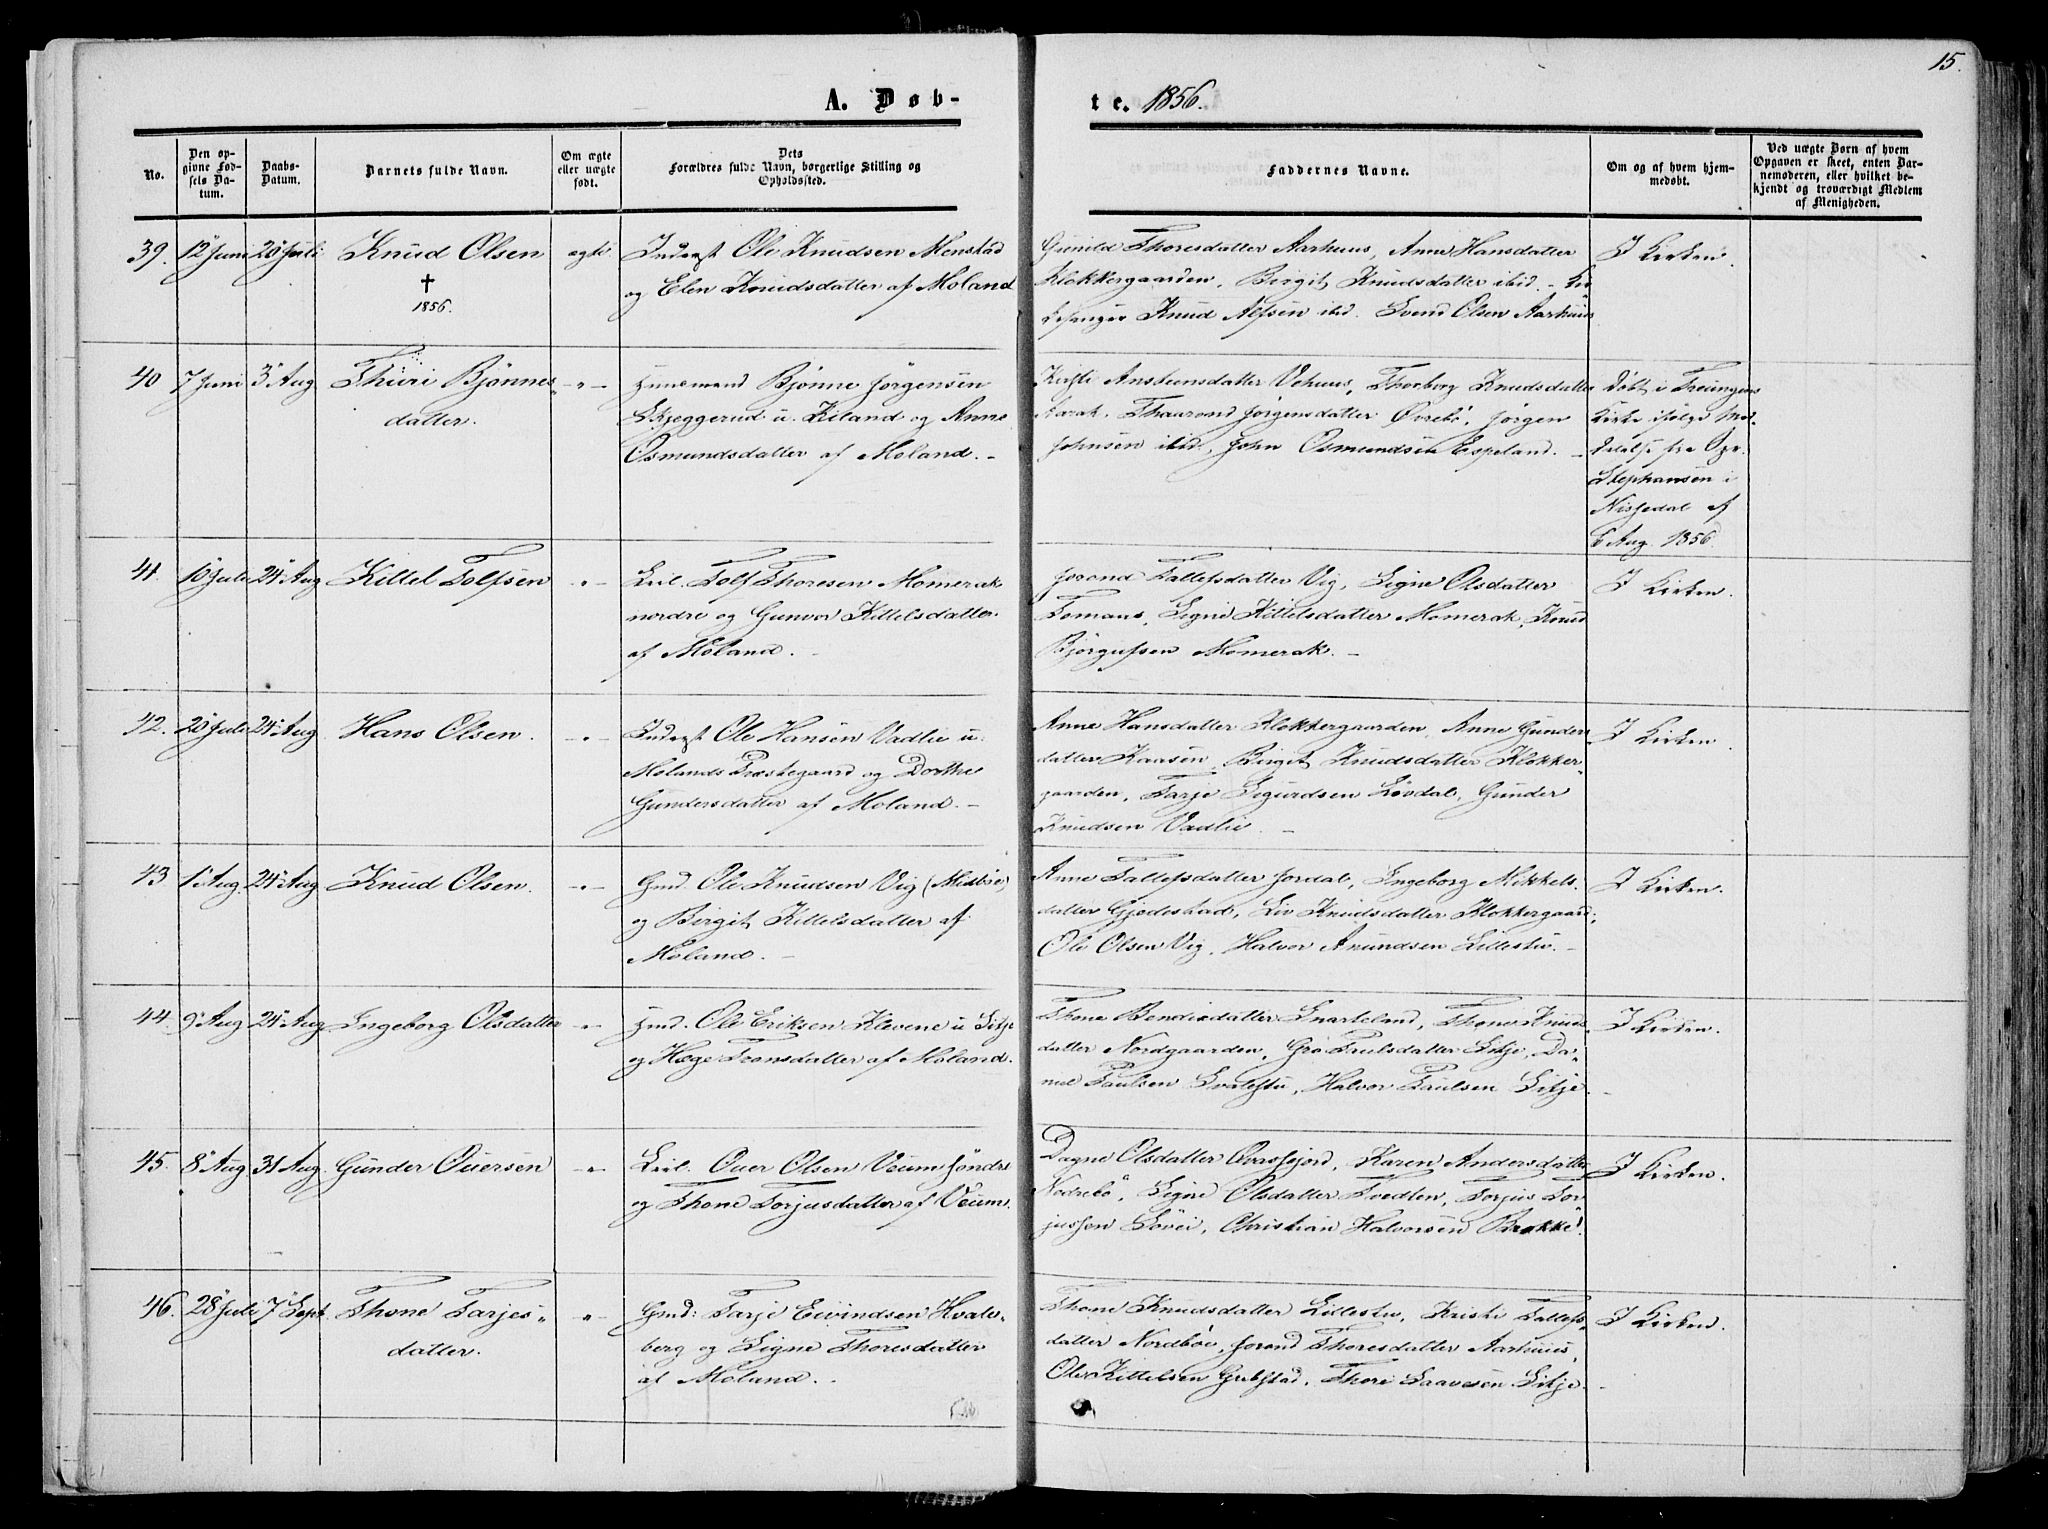 15.
A. Døb-
te. 1856.
No.
Den op-
givne Fød-
sels Da-
tum.
Daabs-
Datum.
Barnets fulde Navn.
Om ægte
eller uægte
født.
Dets
Forældres fulde Navn, borgerlige Stilling og
Opholdssted.
Faddernes Navne.
Om og af hvem hjem-
medøbt.
Ved uægte Børn af hvem
Opgaven er skeet, enten Bar-
nemoderen, eller hvilket be-
kjendt og troværdigt Medlem
af Menigheden.
39. 12 Juni 20 Juli Knud Olsen ægte
† 1856.
Inderst Ole Knudsen Menstad
og Elen Knudsdatter af Moland
Gunild Thoresdatter Aarhuus, Anne Hansdatter
Klokkergaarden, Birgit Knudsdatter ibid. - Kir
kesanger Knud Alfsen ibid. Svend Olsen Aarhuus
I Kirken.
40 7 Juni 3 Aug Thuri Bjønnes-
datter.
-"-
Huusmand Bjønne Jørgensen
Skjeggerud u. Kiland og Anne
Osmundsdatter af Moland. -
Kersti Anstensdatter Vehuus, Thorborg Knudsdatter
Aarak, Thaarond Jørgensdatter Øvrebö, Jørgen
Johnsen ibid, John Osmundsen Espeland. -
Døbt i Treungens
Kirke ifølge Med-
delelse fra Spr.
Stephansen i
Nissedal af
6 Aug. 1856.
41. 10 Juli 24 Aug Kittel Tolfsen -"-
Leil. Tolf Thoresen Momrak
nordre og Gunvor Kittelsdatter
af Moland. -
Jorond Tallefsdatter Vig, Signe Olsdatter
Tomaas, Signe Kittelsdatter Momerak, Knud
Bjørgufsen Momerak. -
I Kirken.
42. 20 Juli 24 Aug Hans Olsen. -"-
Inderst Ole Hansen Vadlie u.
Molands Præstegaard og Dorthe
Gundersdatter af Moland. -
Anne Hansdatter Klokkergaarden, Anne Gunders
datter Kaasen, Birgit Knudsdatter Klokker-
gaarden, Tarje Sigurdsen Løvdal, Gunder
Knudsen Vadlie. -
I Kirken
43 1 Aug. 24 Aug Knud Olsen. -"-
Gmd. Ole Knudsen Vig (Midbøe)
og Birgit Kittelsdatter af
Moland. -
Anne Tallefsdatter Jordal, Ingeborg Mikkels-
datter Gjedestad, Liv Knudsdatter Klokkergaard,
Ole Olsen Vig, Halvor Anundsen Lillestu. -
I Kirken.
44. 9 Aug 24 Aug Ingeborg Olsdatter -"-
Hmd. Ole Eriksen Klevene u Sitje
og Hæge Tronsdatter af Moland.
Thone Bendixdatter Snarteland, Thone Knuds-
datter Nordgaarden, Gro Paulsdatter Sitje, Da-
niel Paulsen Svalestu, Halvor Paulsen Sitje. -
I Kirken.
45. 8 Aug 31 Aug. Gunder Ouersen -"-
Leil. Ouer Olsen Veum søndre
og Thone Torjusdatter af Veum.
Dagne Olsdatter Ovrassejord, Karen Andersdatter
Nedrebö, Signe Olsdatter Tvedten, Torjus Tor-
jussen Søvei, Christian Halvorsen Brokke.
I Kirken.
46. 28 Juli 7 Sept. Thone Tarjes-
datter.
-"-
Gmd: Tarje Eivindsen Kvals-
berg og Signe Thoresdatter
af Moland. -
Thone Knudsdatter Lillestu, Kristi Tallefs-
datter Nordbøe, Jorand Thoresdatter Aarhuus,
Ole Kittelsen Grubstad, Thore Saavesen Sitje. -
I Kirken.